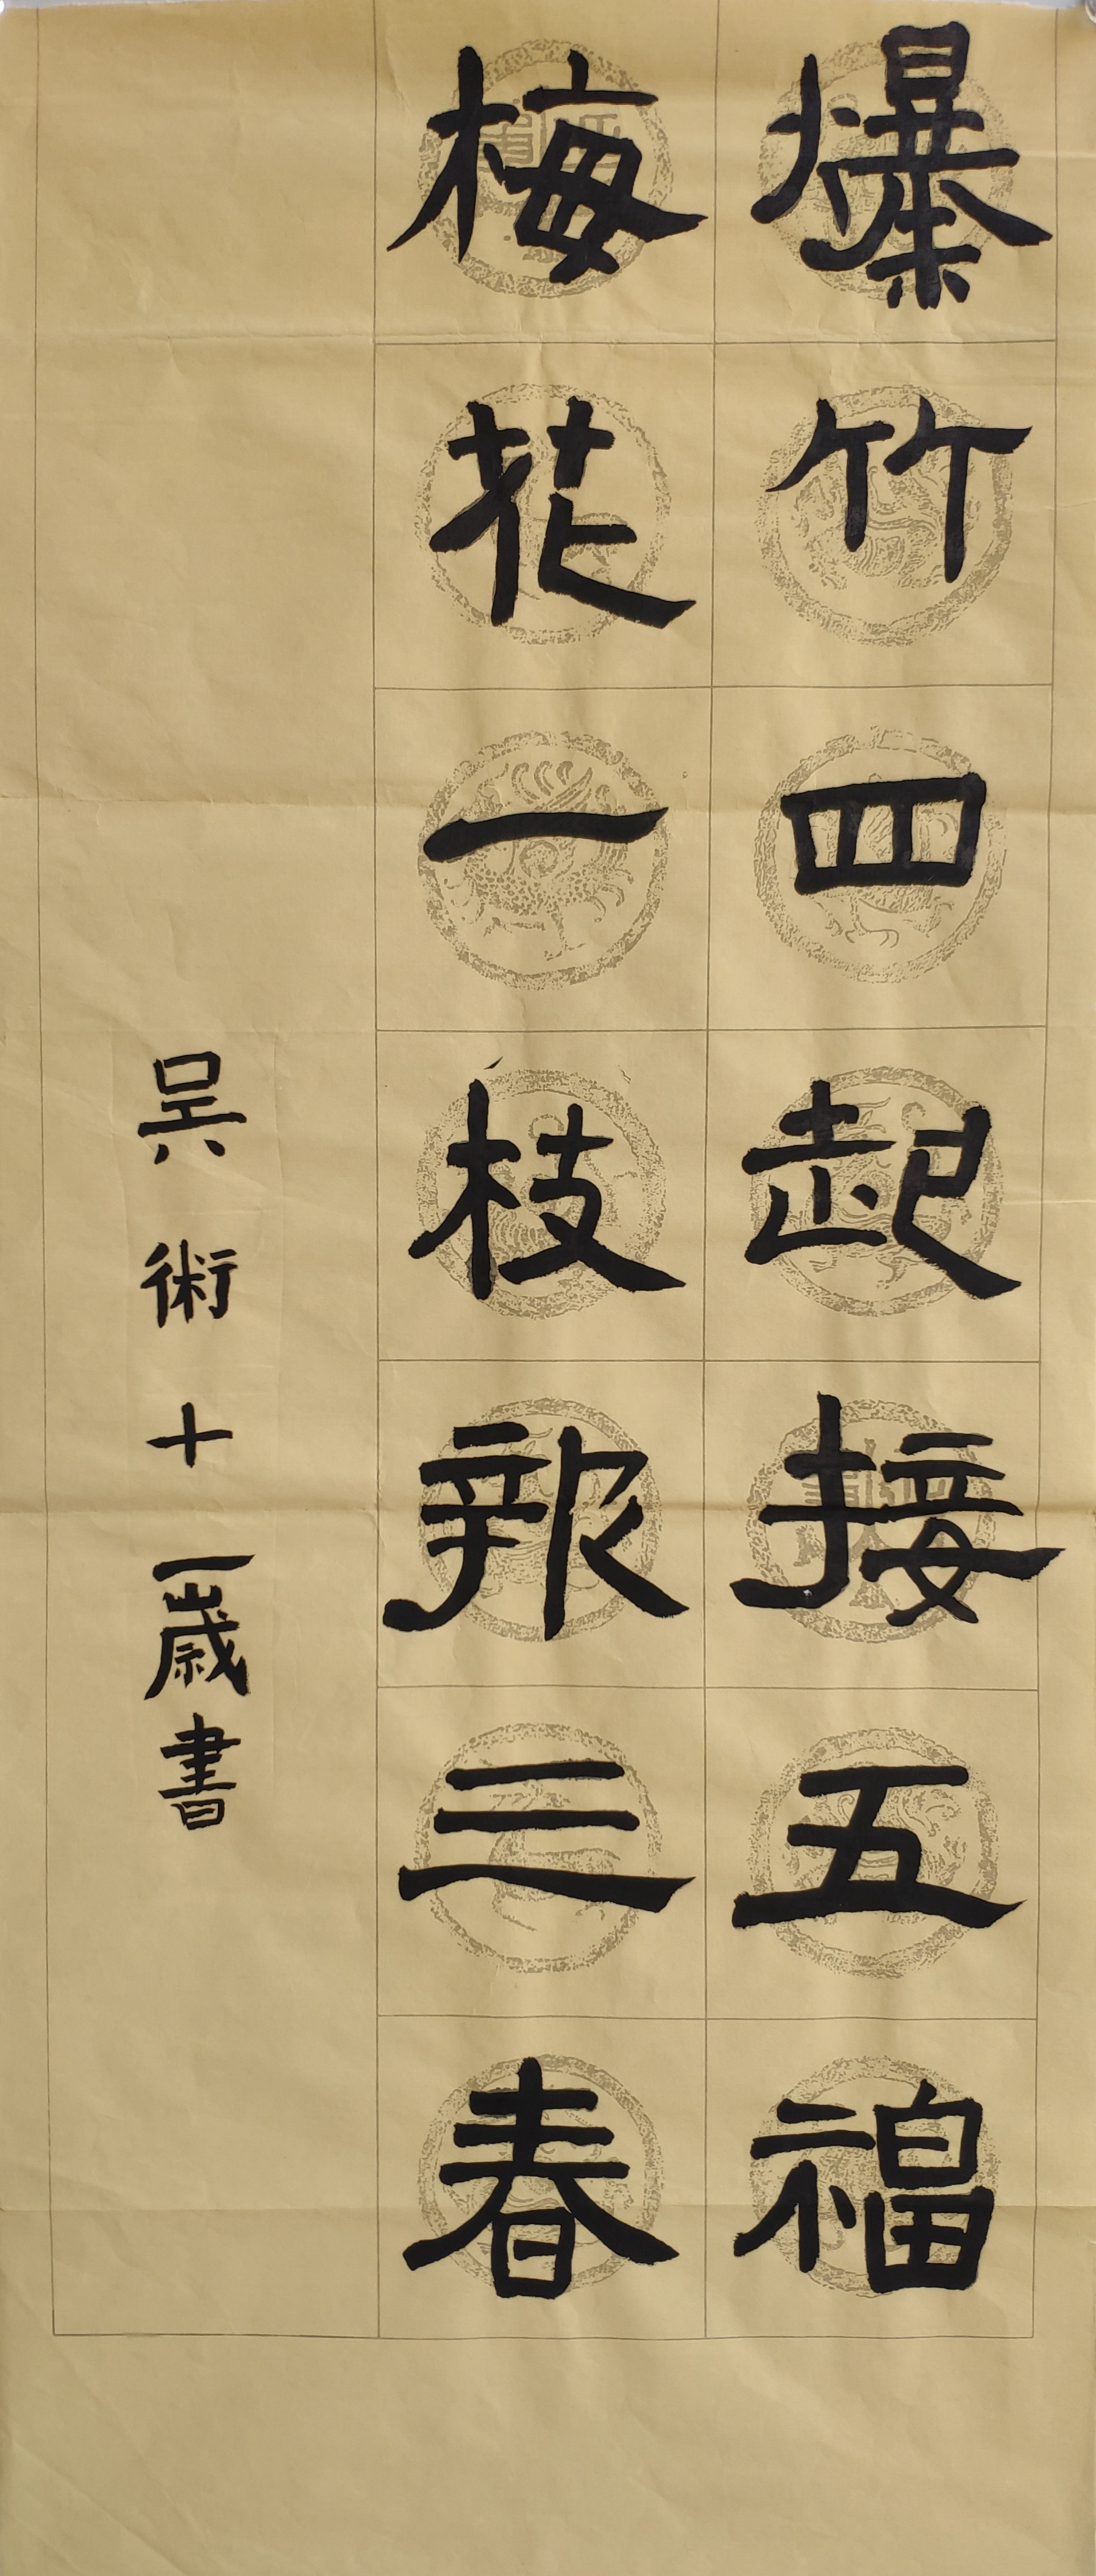 爆竹四起接五福
梅花一枝報三春
吴術十一歲書